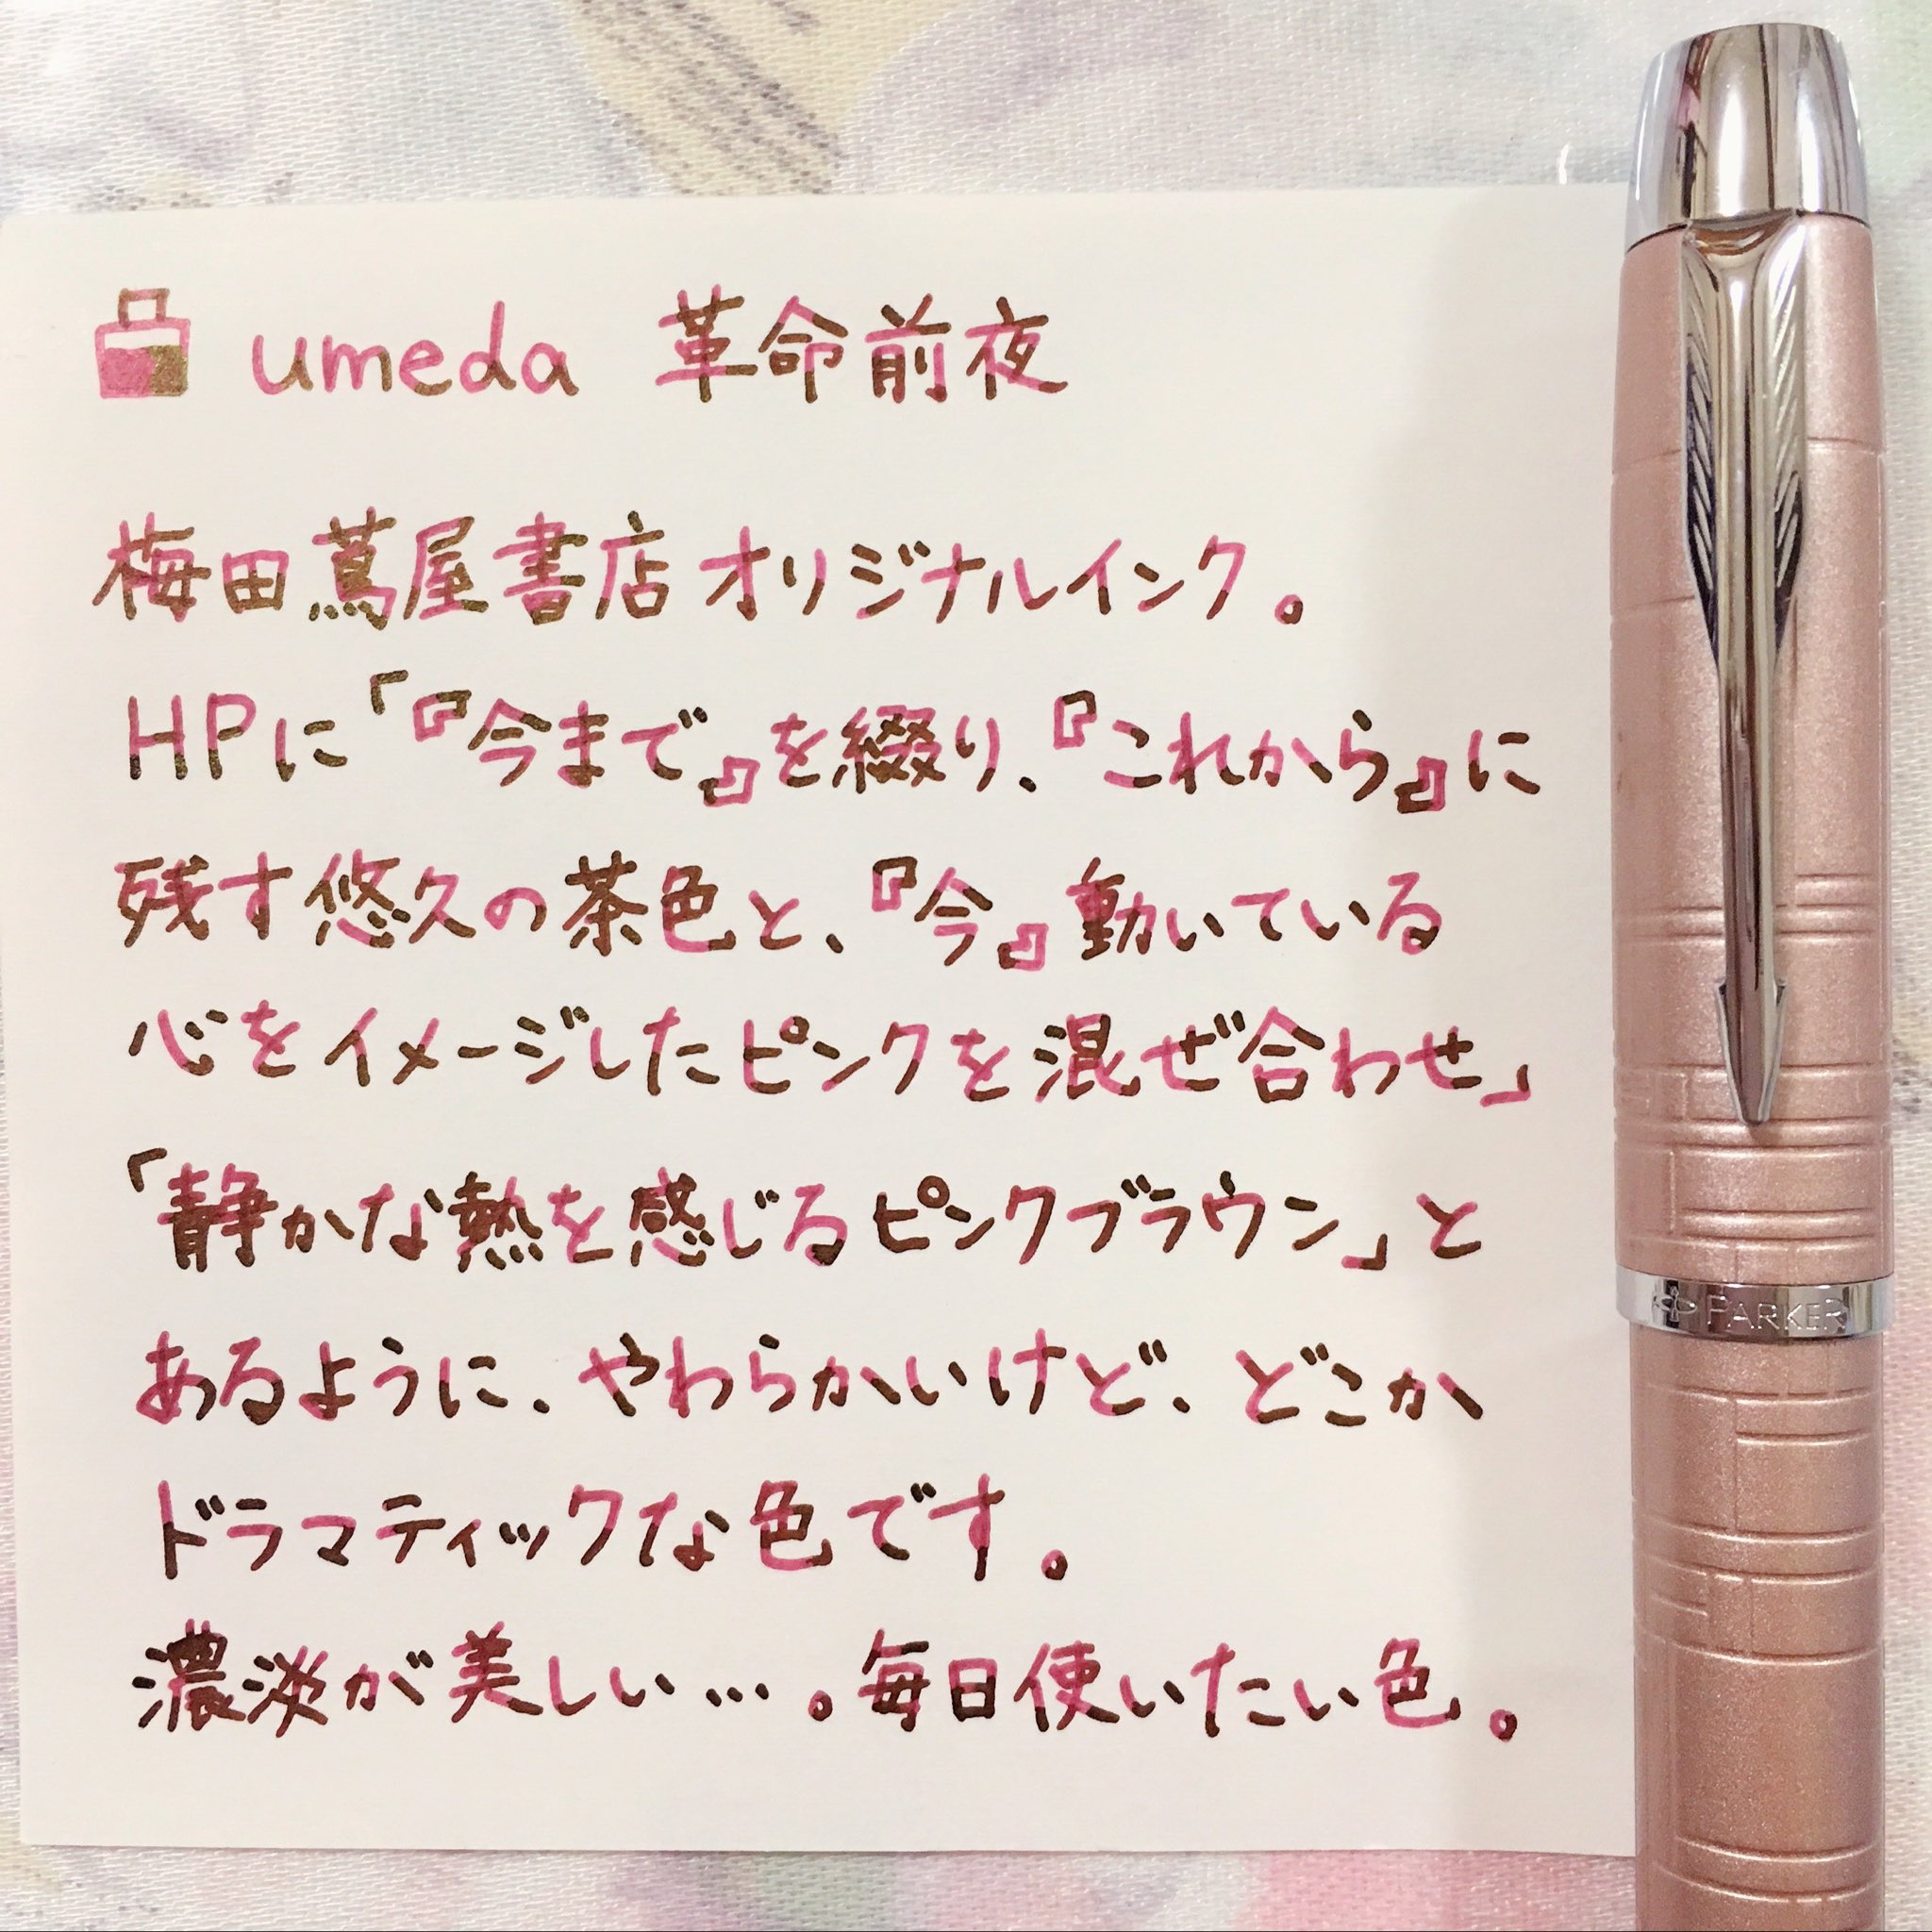 umeda 革命前夜
梅田蔦屋書店オリジナルインク。
HPに「『今まで』を綴り、『これから』に
残す悠久の茶色と、『今』動いている
心をイメージしたピンクを混ぜ合わせ」
「静かな熱を感じるピンクブラウン」と
あるように、やわらかいけど、どこか
ドラマティックな色です。
濃淡が美しい…。毎日使いたい色。
PARKER